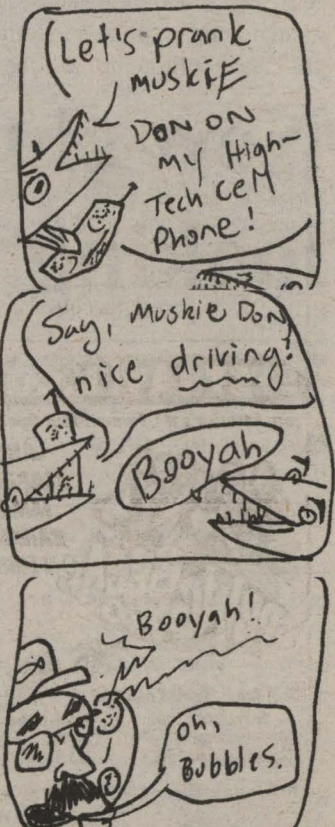 Let's prank
muskiE
DON ON
my High-
Tech cell
Phone!
Say, Muskie Don,
nice driving!
Booyah
Booyah!
Oh,
Bubbles.